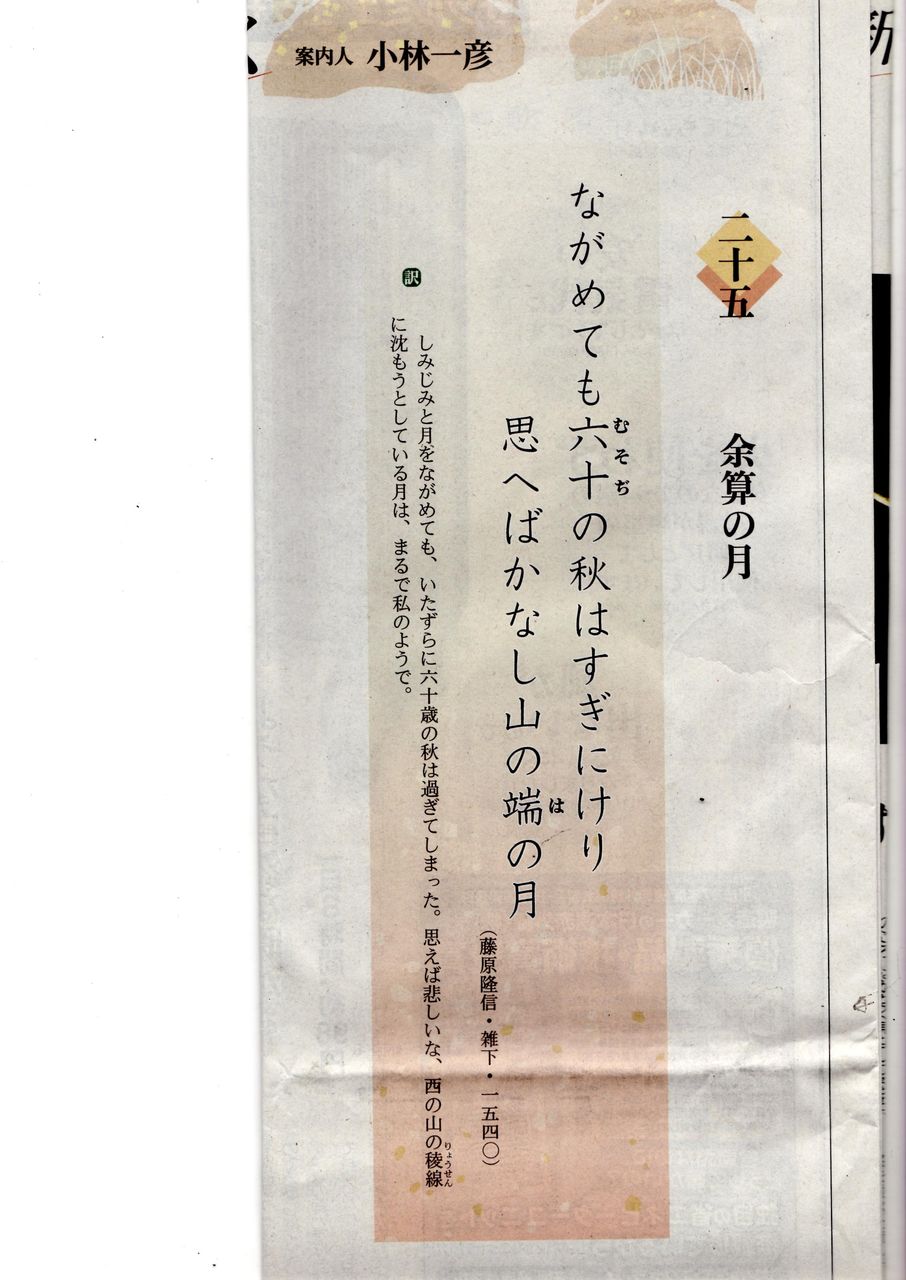 案内人 小林一彦
二十五 余算の月
ながめても六十の秋はすぎにけり
むそぢ
思へばかなし山の端の月
は
(藤原隆信・雑下・一五四〇)
訳
しみじみと月をながめても、いたずらに六十歳の秋は過ぎてしまった。思えば悲しいな、西の山の稜線
りょうせん
に沈もうとしている月は、まるで私のようで。